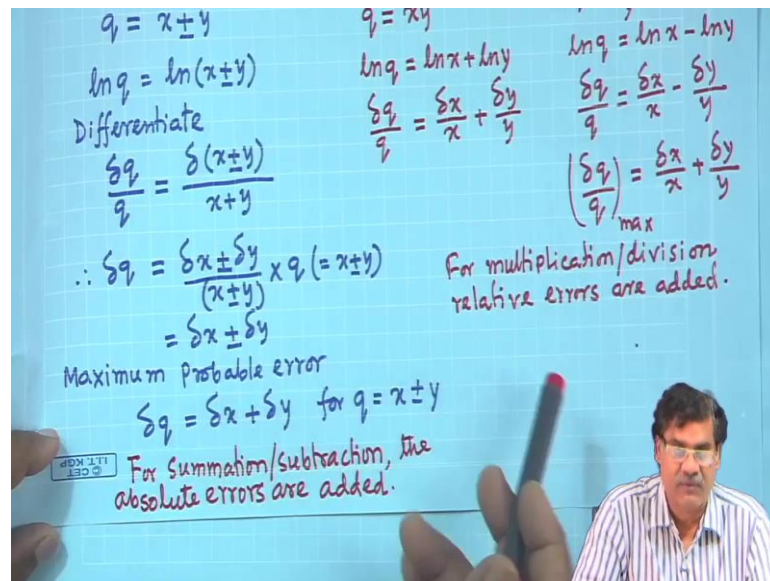 q = x ± y
ln q = ln(x ± y)
Differentiate
δq/q = δ(x±y)/x+y
∴ δq = δx ± δy/(x±y) × q (= x±y)
= δx ± δy
Maximum Probable error
δq = δx + δy for q = x ± y
For summation/subtraction, the
absolute errors are added.
© CET
I.I.T. KGP
q = xy
ln q = ln x + ln y
δq/q = δx/x + δy/y
ln q = ln x − ln y
δq/q = δx/x − δy/y
(δq/q)max = δx/x + δy/y
For multiplication/division,
relative errors are added.